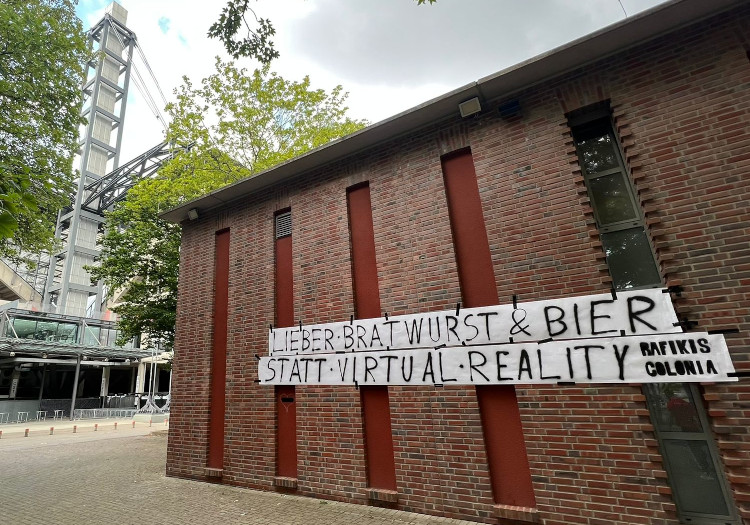 LIEBER·BRATWURST & BIER
STATT·VIRTUAL·REALITY
RAFIKIS
COLONIA